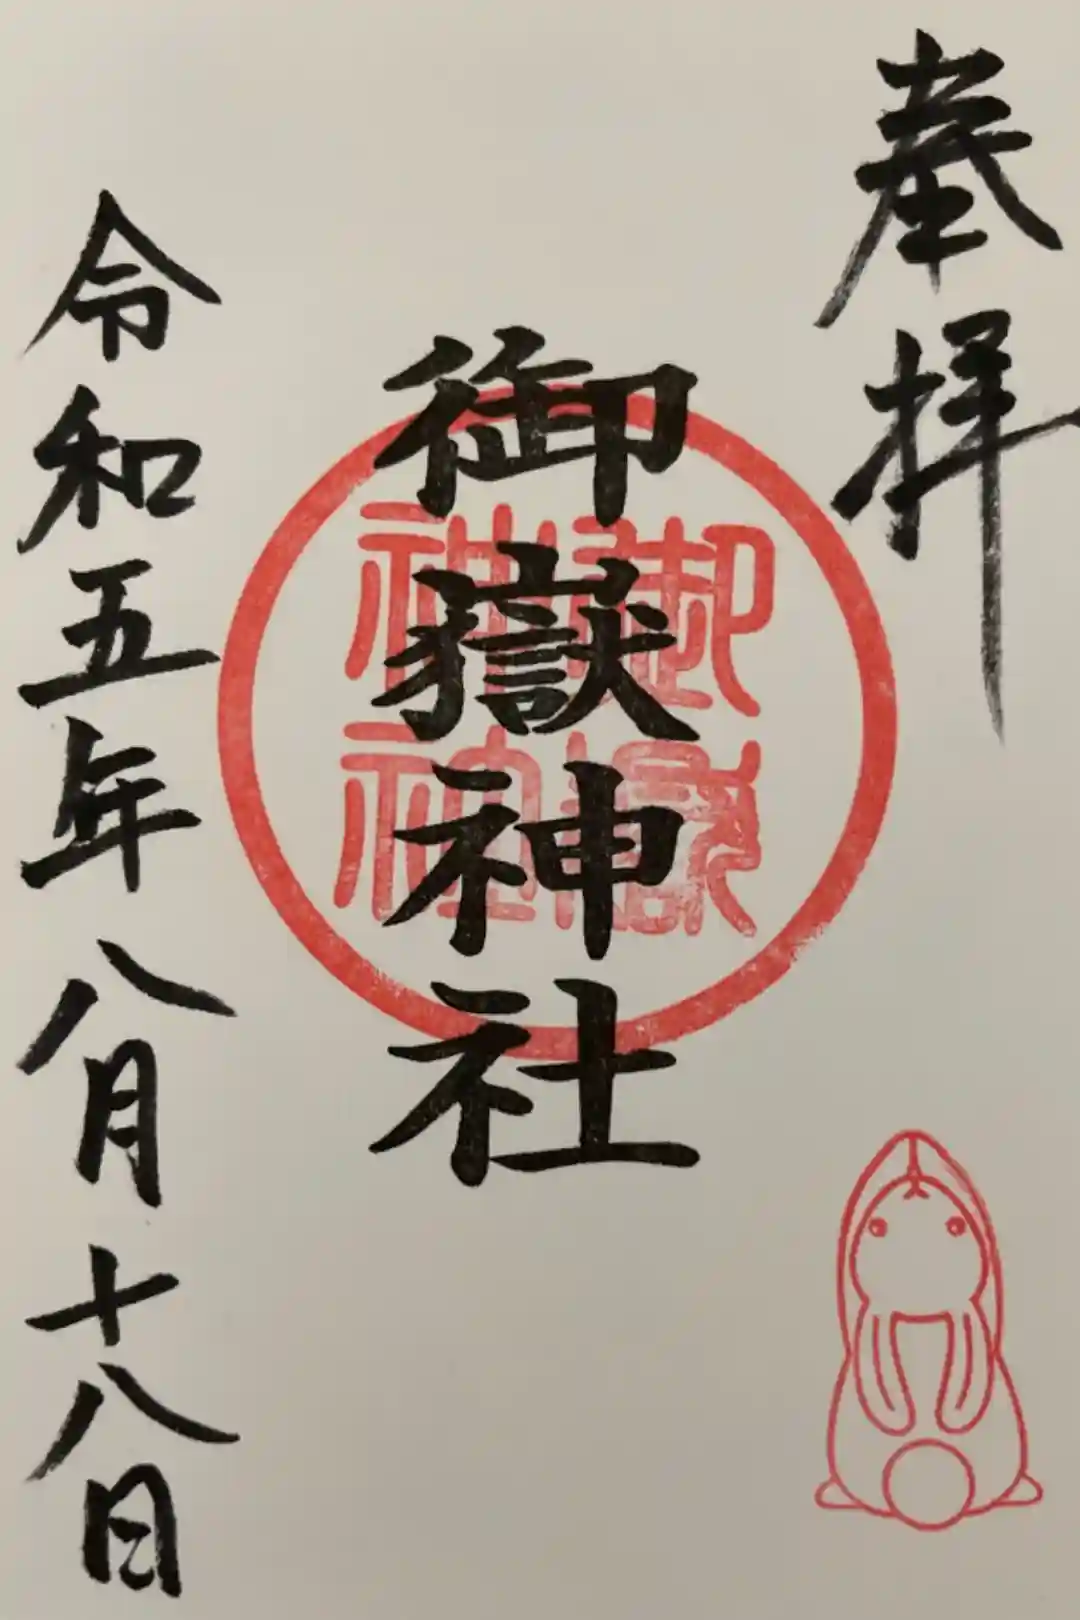 奉拝
御嶽神社
御嶽
神社
令和五年八月十八日